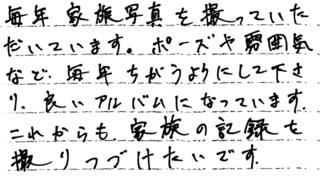 毎年 家族写真を撮っていた
だいています。ポーズや雰囲気
など、毎年ちがうようにして下さ
り、良いアルバムになっています。
これからも、家族の記録を
撮りつづけたいです。